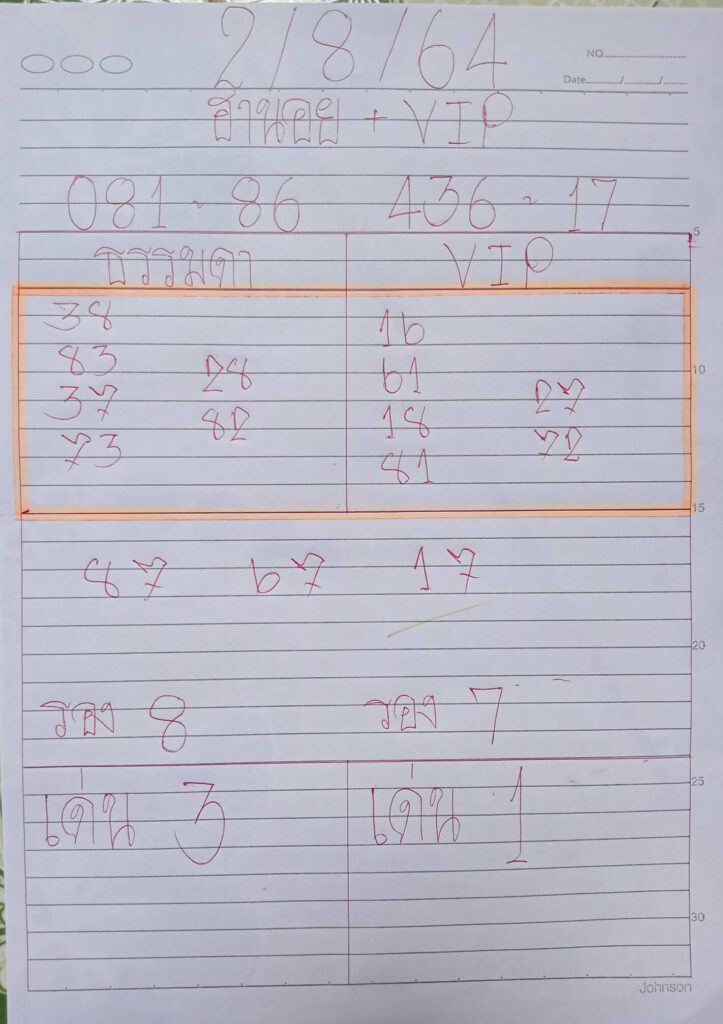 2/8/64
NO.
Date / /
ฮานอย + VIP
081 - 86 436 - 17
5
ธรรมดา VIP
38 16
83 28 61 27
10
37 82 18 72
73 81
15
87 67 17
20
รอง 8 รอง 7
25
เด่น 3 เด่น 1
30
Johnson